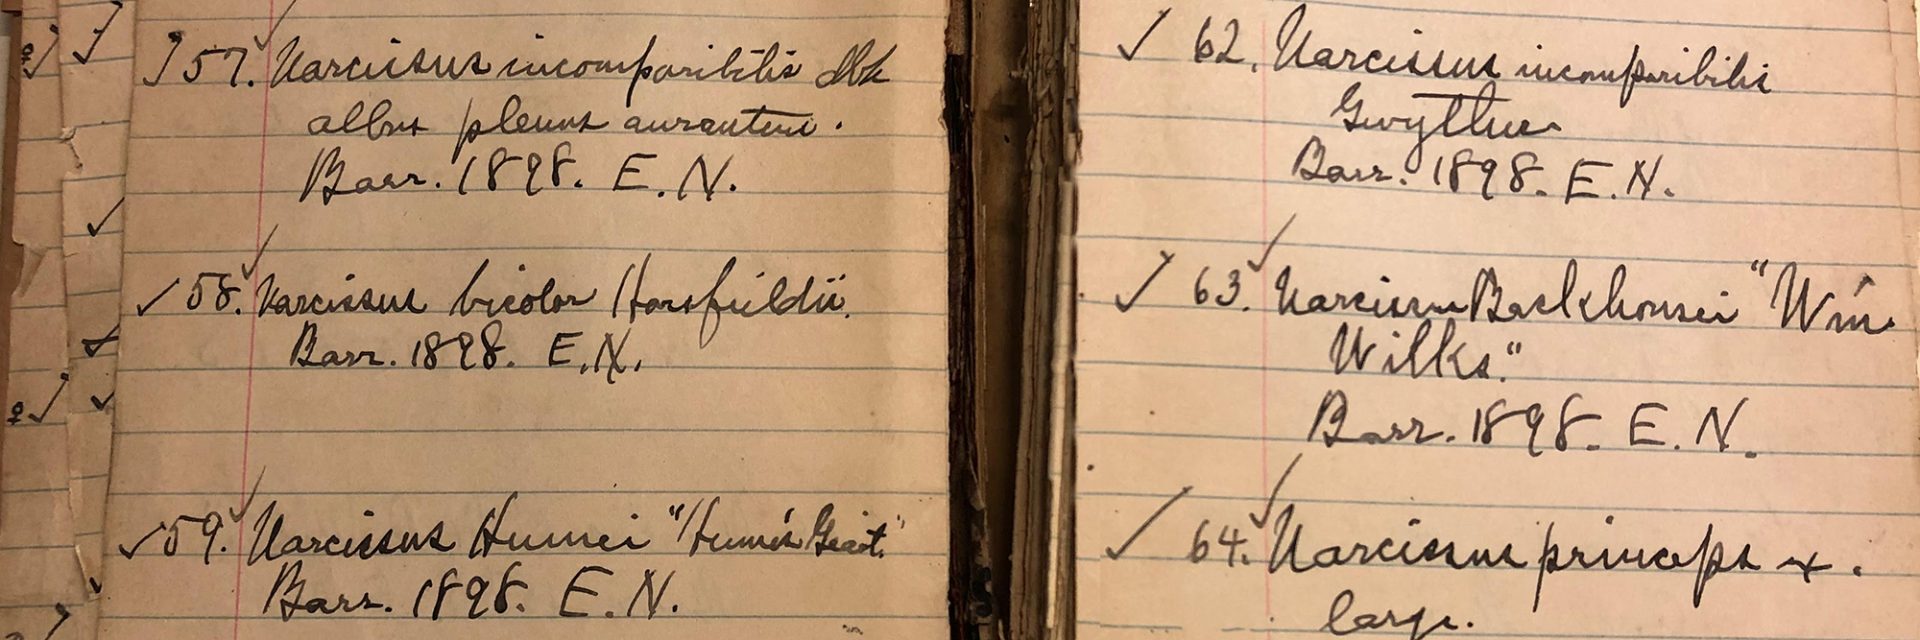 57. Narcissus incomparibilis dbl.
albus plenus aurantiu.
Barr. 1898. E. N.
✓ 58. Narcissus bicolor Horsfieldii.
Barr. 1898. E. N.
✓ 59. Narcissus Humei "Hume's Giant."
Barr. 1898. E. N.
✓ 62. Narcissus incomparibilis
Gwyther
Barr. 1898. E. N.
✓ 63. Narcissus Backhousei "Wm
Wilks."
Barr. 1898. E. N.
✓ 64. Narcissus princeps
large.